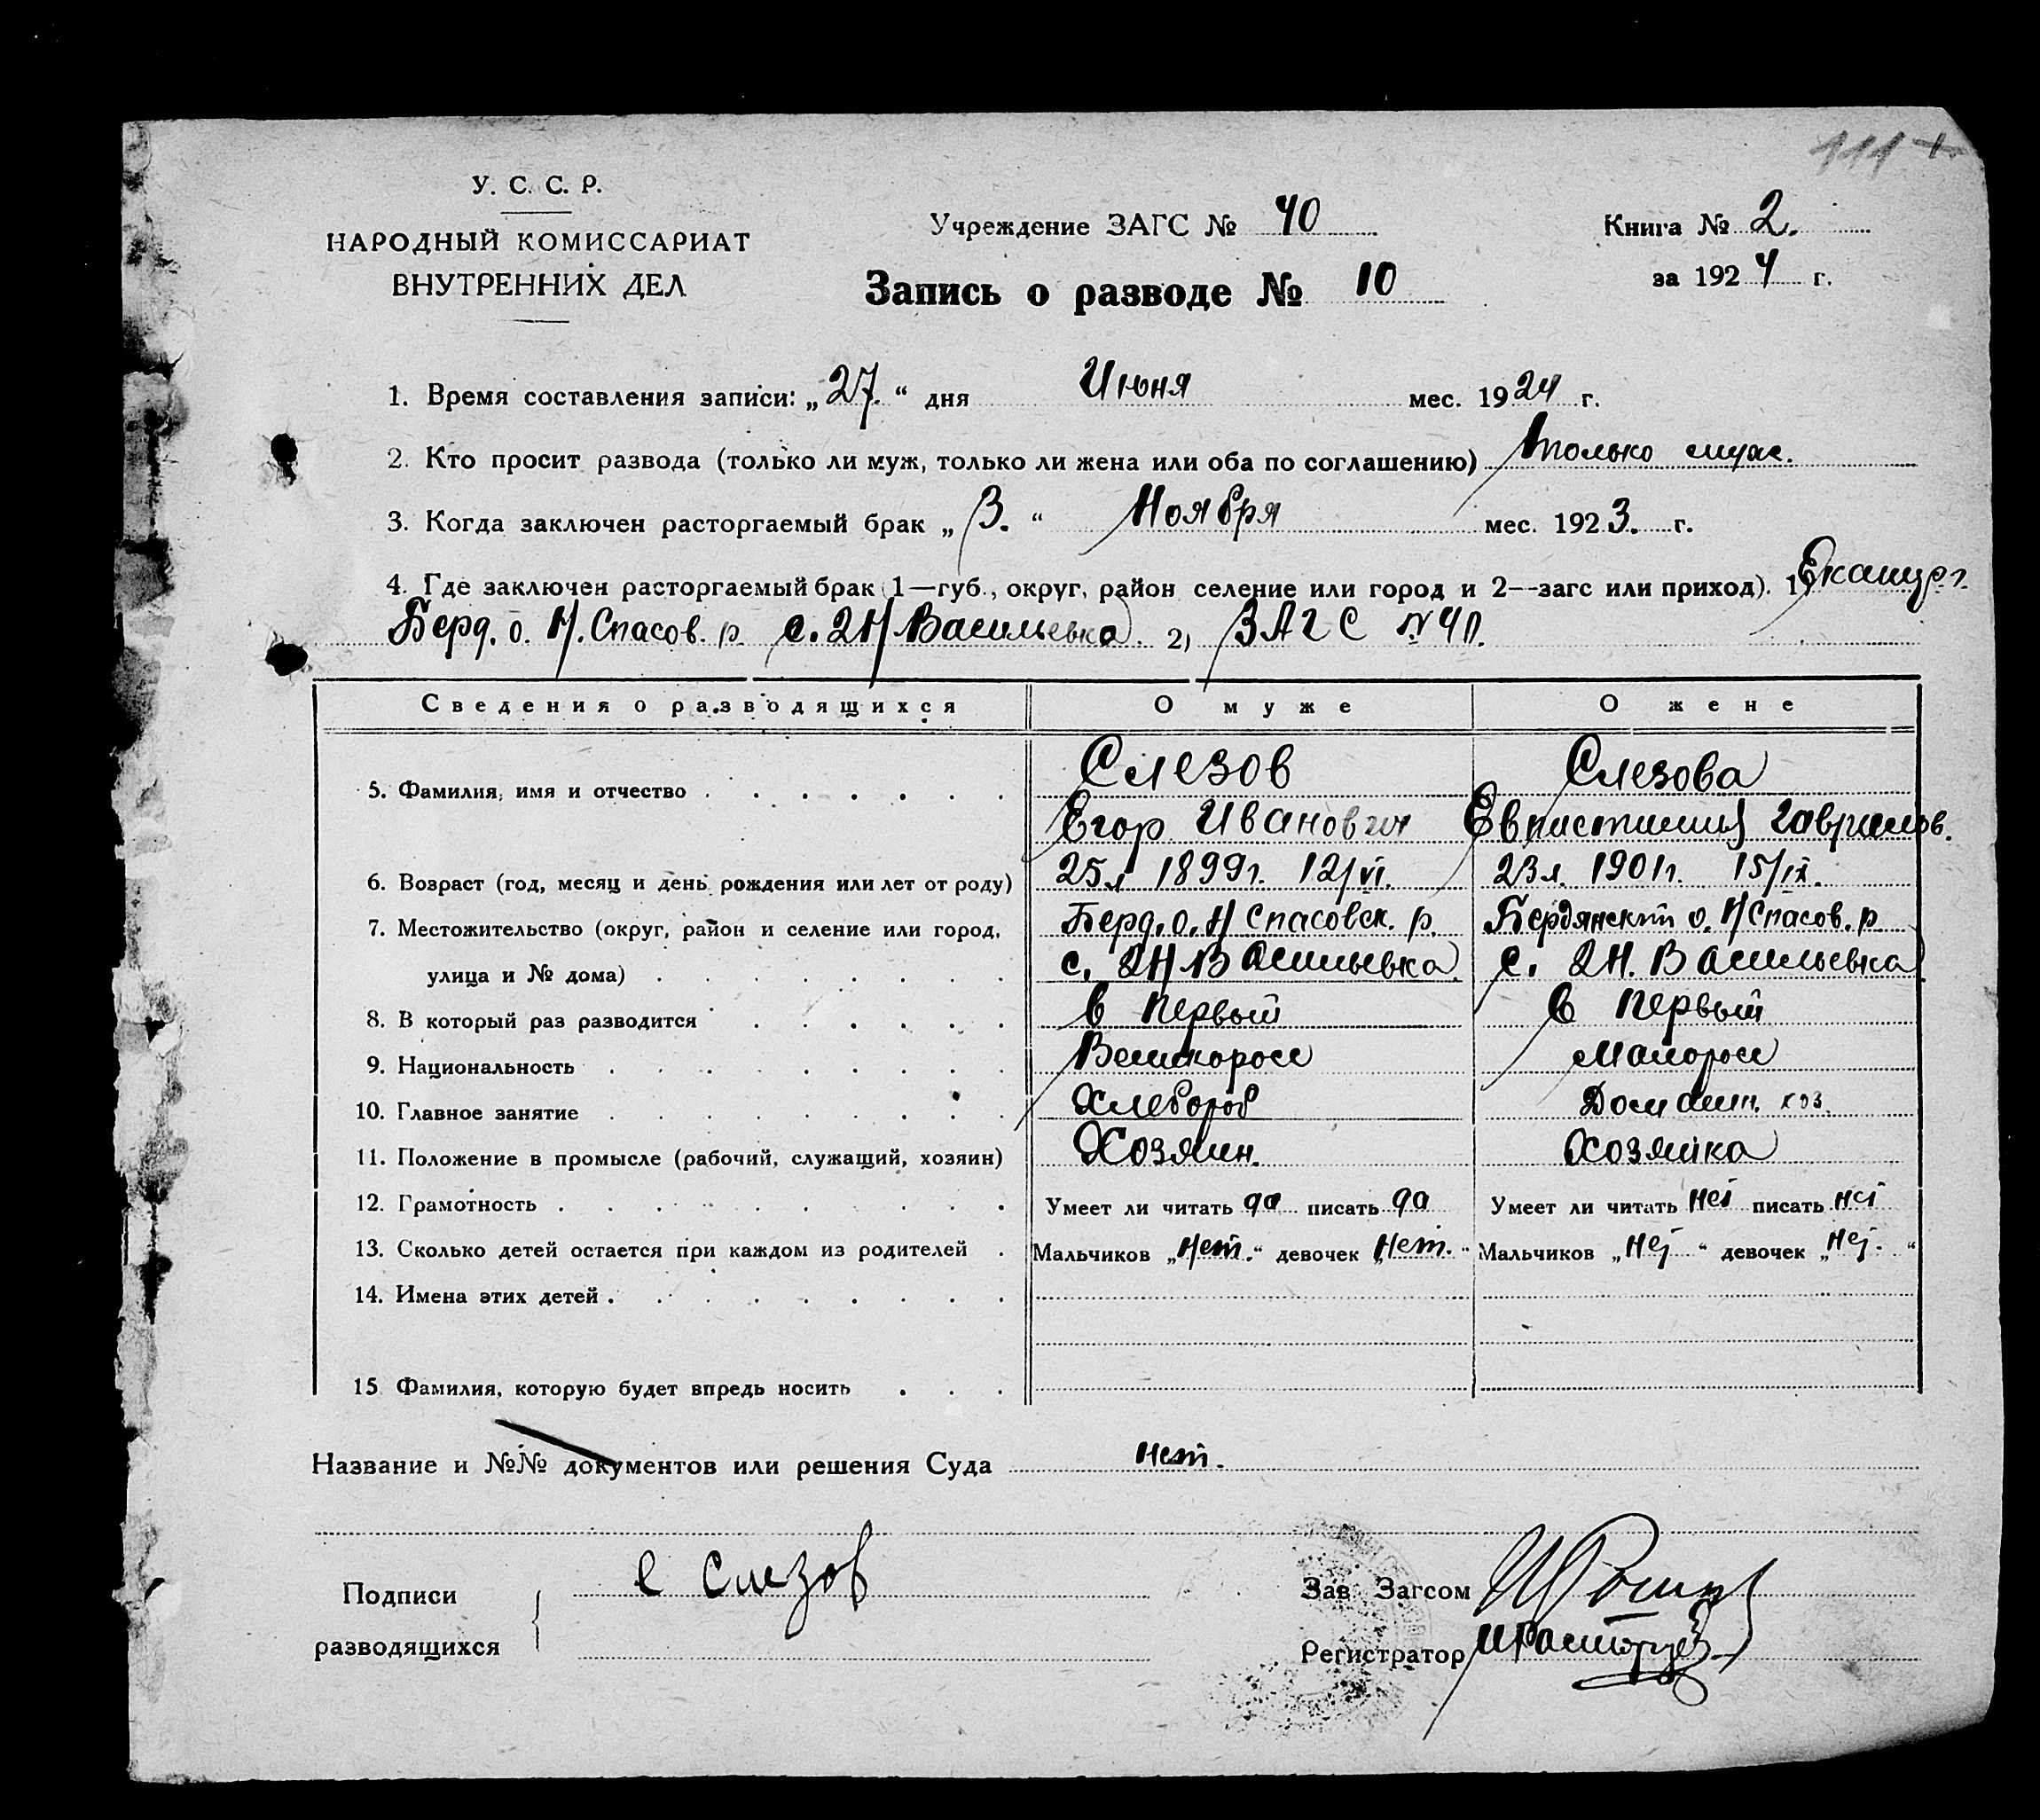 111 +
У. С. С. Р.
НАРОДНЫЙ КОМИССАРИАТ
ВНУТРЕННИХ ДЕЛ
Учреждение ЗАГС № 40
Книга № 2.
за 1924 г.
Запись о разводе № 10
1. Время составления записи: „27.“ дня Июня мес. 1924 г.
2. Кто просит развода (только ли муж, только ли жена или оба по соглашению) только муж.
3. Когда заключен расторгаемый брак „3.“ Ноября мес. 1923. г.
4. Где заключен расторгаемый брак (1—губ., округ, район селение или город и 2—загс или приход). 1)
Берд. о. Н. Спасов. р. с. 2Н Васильевка 2) ЗАГС № 40.
Сведения о разводящихся О муже О жене
Слезов Слезова
5. Фамилия, имя и отчество
Егор Иванович Гаврилов.
6. Возраст (год, месяц и день рождения или лет от роду) 25л 1899г. 12/VI. 23л. 1901г. 15/IX.
7. Местожительство (округ, район и селение или город, Берд. о. Н Спасовск. р. Бердянский о. Н Спасов. р
улица и № дома) с. 2Н Васильевка с. 2Н. Васильевка
8. В который раз разводится в первый в первый
9. Национальность Великоросс Малоросс
10. Главное занятие Хлебороб Домашн. хоз.
11. Положение в промысле (рабочий, служащий, хозяин) Хозяин. Хозяйка
12. Грамотность Умеет ли читать да писать да Умеет ли читать нет писать нет
13. Сколько детей остается при каждом из родителей Мальчиков „Нет.“ девочек „Нет.“ Мальчиков „Нет“ девочек „Нет.“
14. Имена этих детей
15 Фамилия, которую будет впредь носить
Название и №№ документов или решения Суда нет.
Подписи
разводящихся
е Слезов
Зав. Загсом
Регистратор